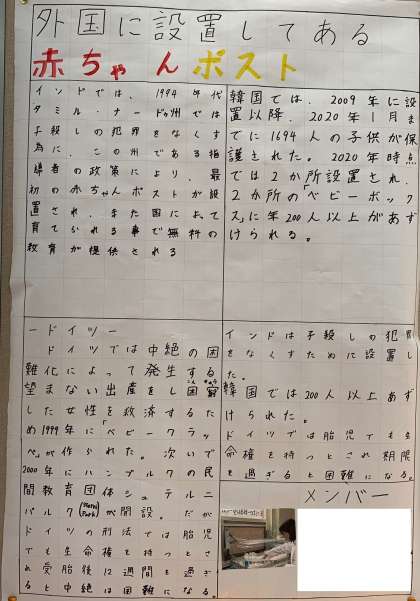 外国に設置してある
赤ちゃんポスト
インドでは、1994年代
タミル・ナードゥ州では
子殺しの犯罪をなくす
為に、この州である指
導者の政策により、最
初の赤ちゃんポストが設
置され、また国によって
育てられる事で無料の
教育が提供される
韓国では、2009年に設
置以降、2020年1月ま
でに1694人の子供が保
護された。2020年時点
では2か所設置され、
2か所の「ベビーボック
ス」に年200人以上があず
けられる。
ードイツー
ドイツでは中絶の困
難化によって発生する
望まない出産をし困窮
した女性を救済するた
め1999年に「ベビークラッ
ペ」が作られた。次いで
2000年にハンブルクの民
間教育団体シュテルニ
パルク(Park)が開設。だが
ドイツの刑法では胎児
でも生命権を持つとさ
れ受胎後12週間を過ぎ
ると中絶は困難になる。
インドは子殺しの犯罪
をなくすために設置し
た。
韓国では200人以上あず
けられた。
ドイツでは胎児でも生
命権を持つとされ期限
を過ぎると困難になる。
メンバー